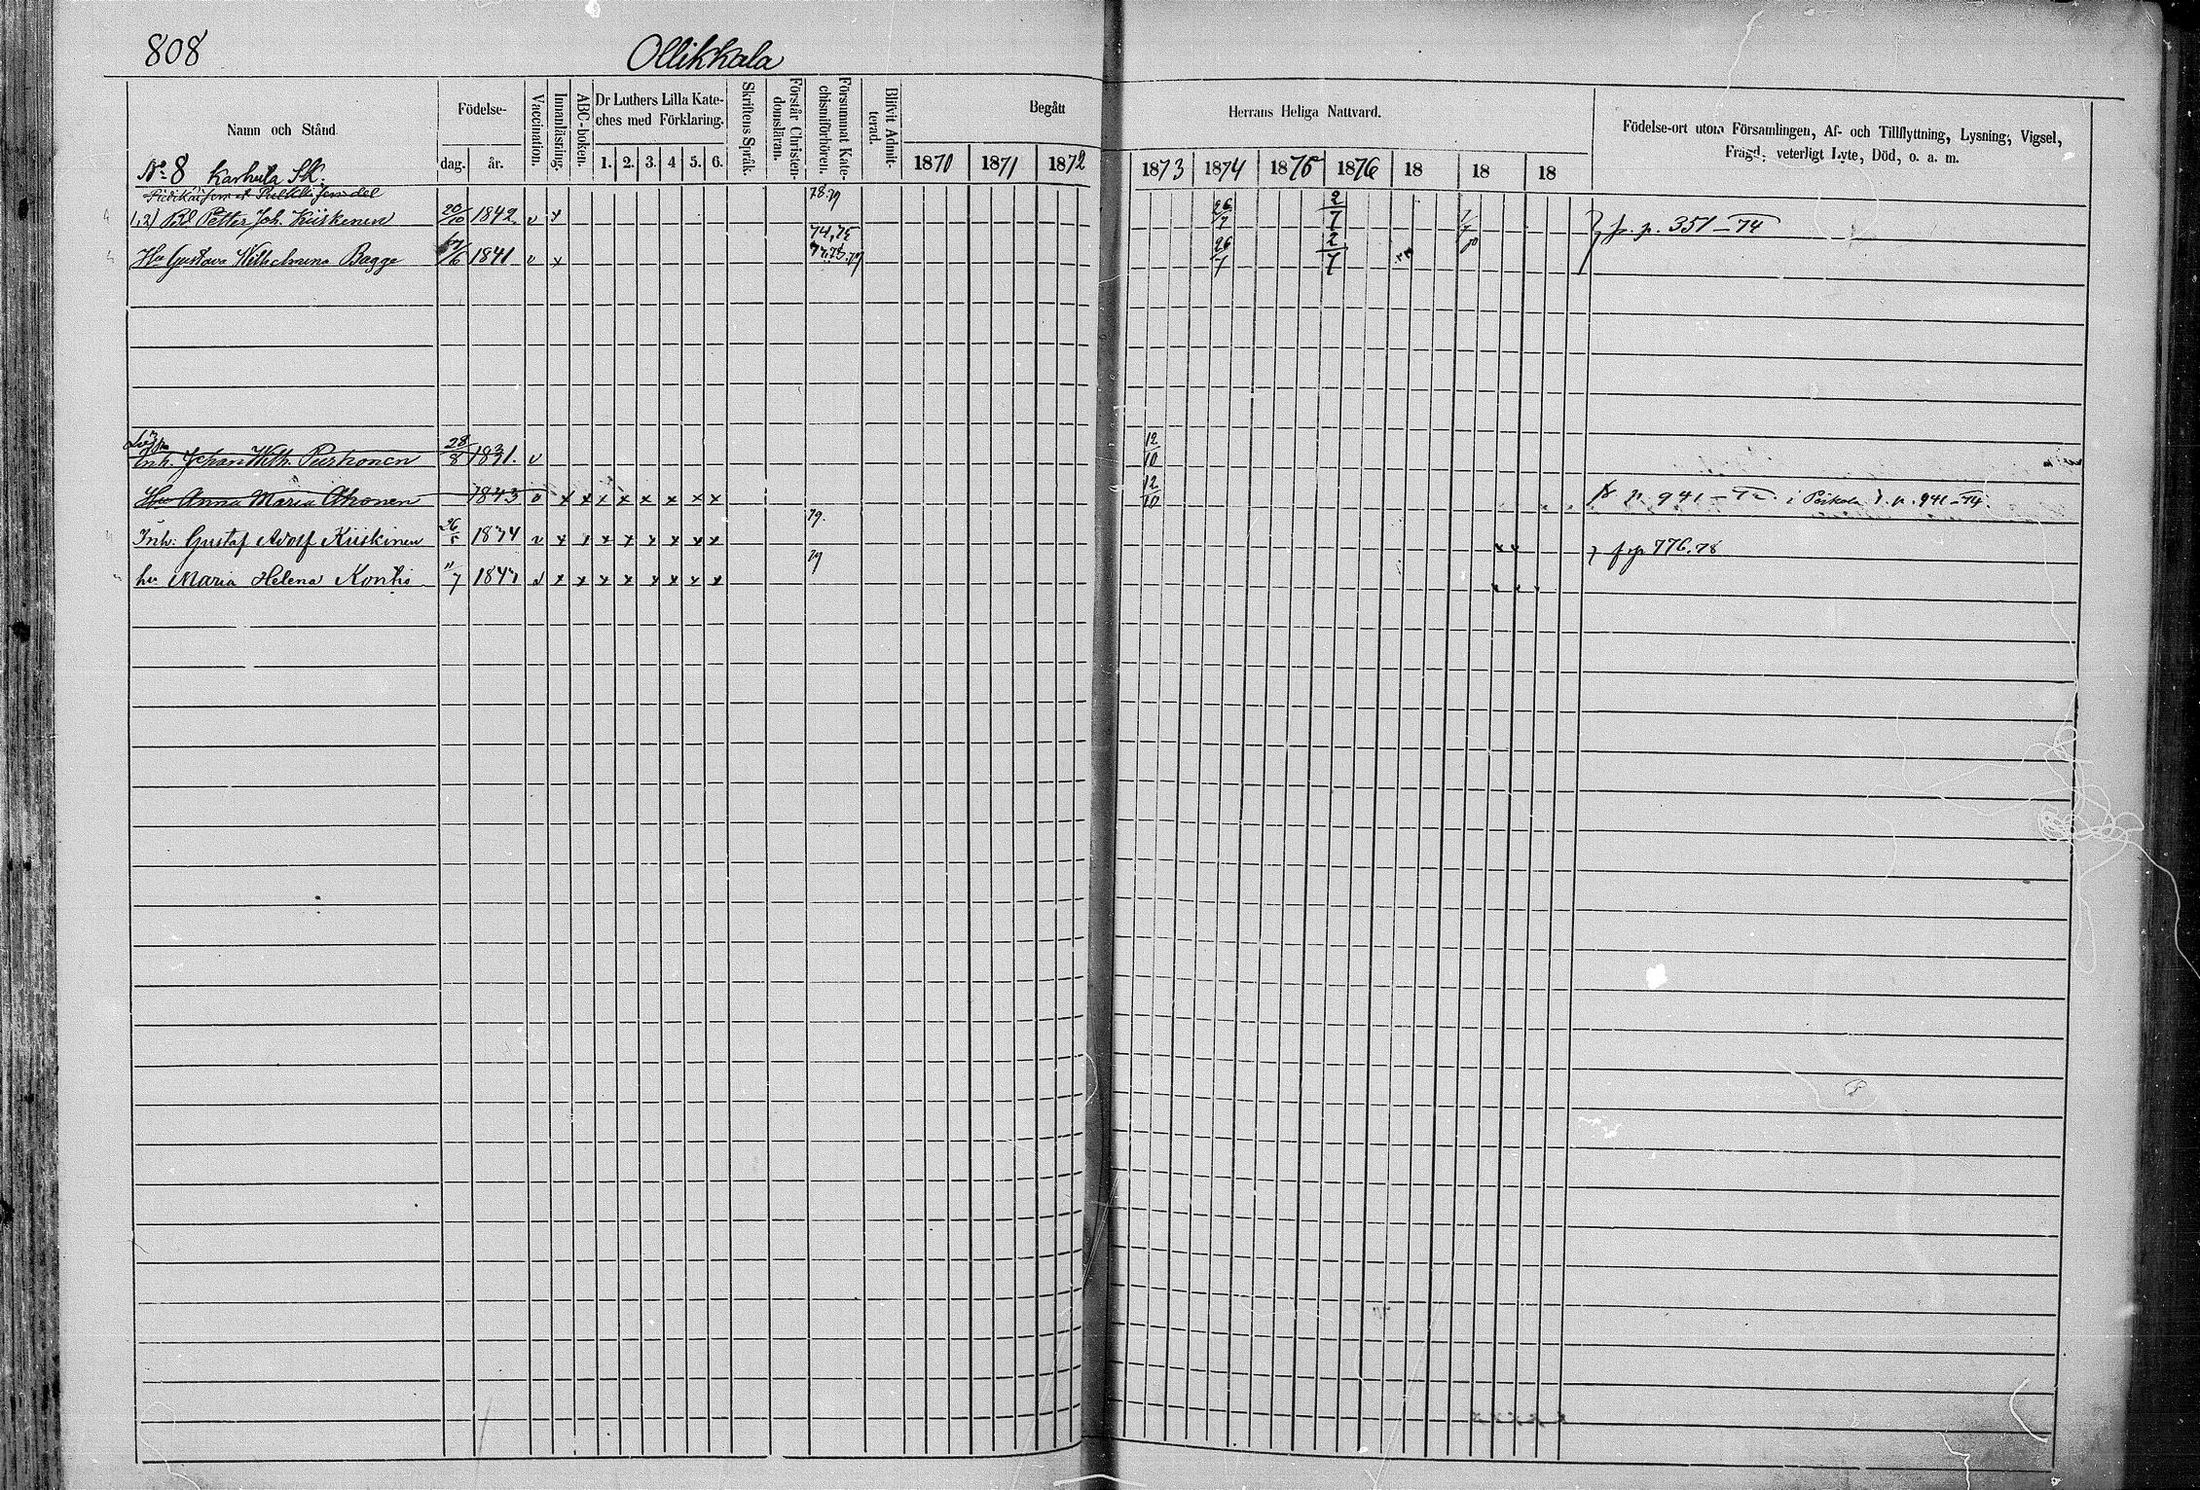 808
Ollikkala
Namn och Stånd.
Födelse-
dag.
år.
Vaccination.
Innanläsning.
ABC-boken.
Dr Luthers Lilla Kate-
ches med Förklaring.
1. 2. 3. 4 5. 6.
Skriftens Språk.
Förstår Christen-
domsläran.
Försummat Kate-
chismiförhören.
Blifvit Admit-
terad.
Begått
Herrans Heliga Nattvard.
1870 1871 1872
1873 1874 1875 1876 18 18 18
Födelse-ort utom Församlingen, Af- och Tillflyttning, Lysning, Vigsel,
Frägd, veterligt Lyte, Död, o. a. m.
No 8 Karhula Sk.
78.79
1,2) Bd Petter Joh. Kiiskenen 20/10 1842 v x 26/7 2/7 fr. p. 351-74
74,75
Hu Gustava Wilhelmina Bagge 1841 v x 26/7 2/7
Inh. Johan Wilh. Purhonen 28/8 1831. v 12/10
Hu Anna Maria Ahonen 1843 v x x x x x x x x 12/10 p. 941-74.
79.
Inh. Gustaf Adolf Kiiskinen v x x x x x x x x f p 776.78
79
hu Maria Helena Kontio 11/7 v x x x x x x x x